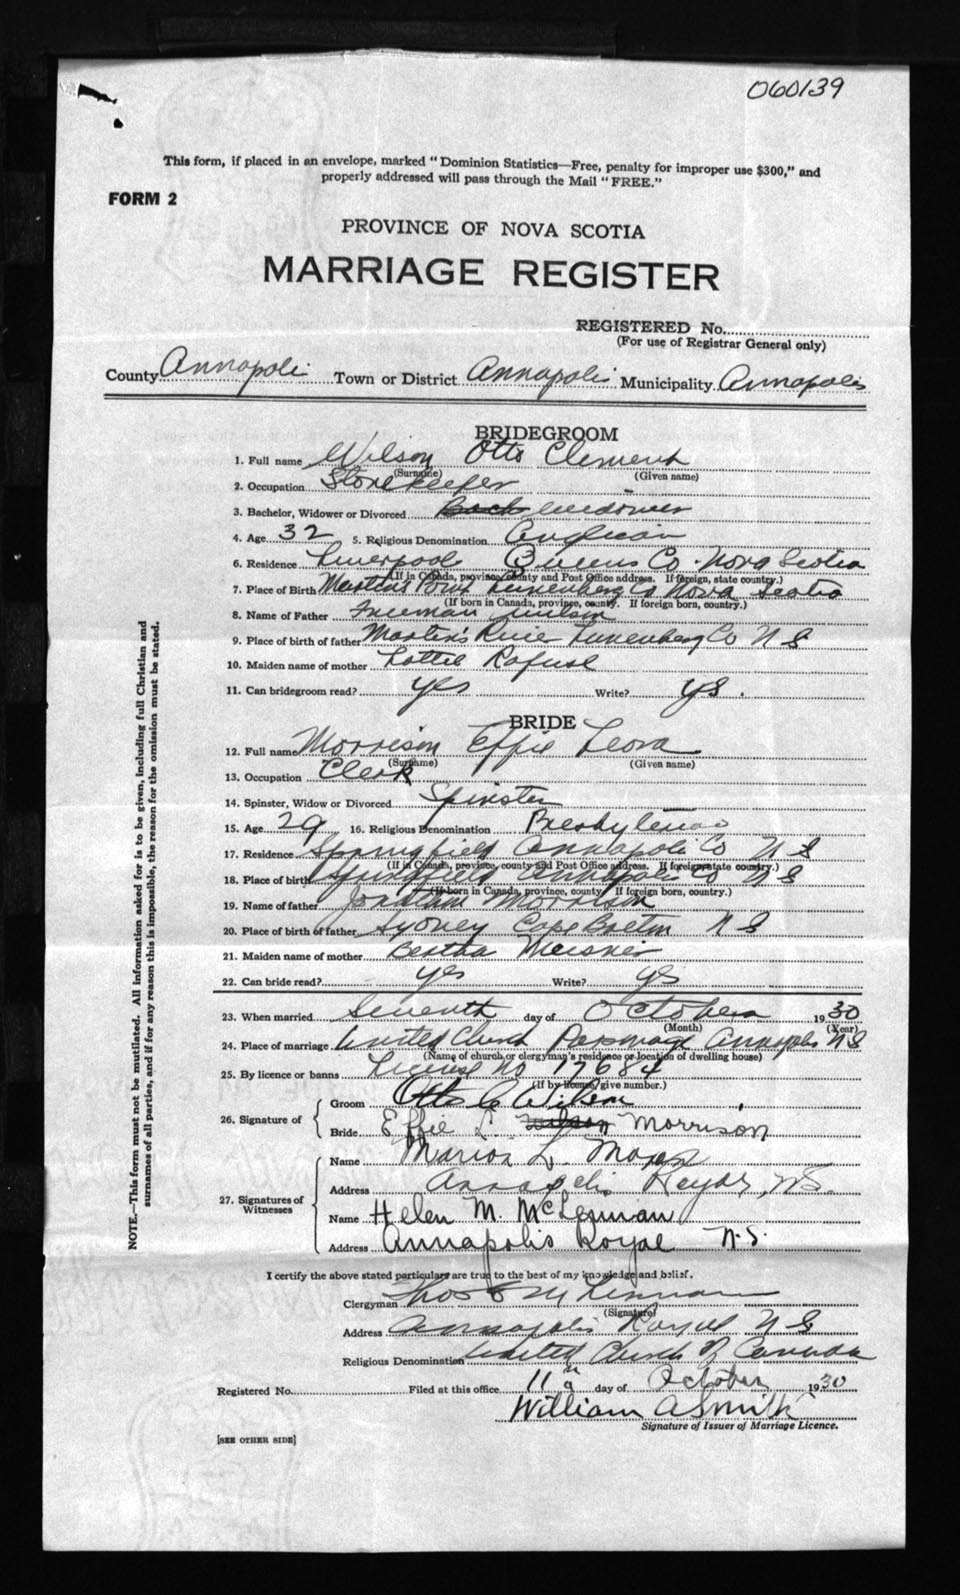 060139
This form, if placed in an envelope, marked "Dominion Statistics—Free, penalty for improper use $300," and
properly addressed will pass through the Mail "FREE."
FORM 2
PROVINCE OF NOVA SCOTIA
MARRIAGE REGISTER
REGISTERED No.
(For use of Registrar General only)
County Annapolis Town or District Annapolis Municipality Annapolis
BRIDEGROOM
1. Full name Wilson Otto Clement
(Surname) (Given name)
2. Occupation Storekeeper
3. Bachelor, Widower or Divorced Bach widower
4. Age 32 5. Religious Denomination Anglican
6. Residence Liverpool Queens Co. Nova Scotia
(If in Canada, province, county and Post Office address. If foreign, state country.)
7. Place of Birth Martin's Lunenburg Co Nova Scotia
(If born in Canada, province, county. If foreign born, country.)
8. Name of Father Freeman Wilson
9. Place of birth of father Martin's River Lunenburg Co N S
10. Maiden name of mother Lottie Rafuse
11. Can bridegroom read? yes Write? ys.
BRIDE
12. Full name Morrison Effie Leora
(Surname) (Given name)
13. Occupation Clerk
14. Spinster, Widow or Divorced Spinster
15. Age 29 16. Religious Denomination Presbyterian
17. Residence Springfield Annapolis Co N S
(If in Canada, province, county and Post Office address. If foreign state country.)
18. Place of birth Springfield Annapolis Co N S
(If born in Canada, province, county. If foreign born, country.)
19. Name of father Morrison
20. Place of birth of father Sydney Cape Breton N S
21. Maiden name of mother Bertha Meisner
22. Can bride read? yes Write? ys
23. When married Seventh day of October 1930
(Month) (Year)
24. Place of marriage United Church Parsonage Annapolis N S
(Name of church or clergyman's residence or location of dwelling house)
25. By licence or banns License No 17684
(If by license, give number.)
26. Signature of Groom Otto C Wilson
Bride Effie L. Wilson Morrison
27. Signatures of Witnesses Name Marion L.
Address Annapolis Royal, N.S.
Name Helen M. McLennan
Address Annapolis Royal N.S.
I certify the above stated particulars are true to the best of my knowledge and belief.
Clergyman Thos
(Signature)
Address Annapolis Royal N S
Religious Denomination United Church of Canada
Registered No. Filed at this office 11 day of October 1930
William A Smith
Signature of Issuer of Marriage Licence.
[SEE OTHER SIDE]
NOTE.—This form must not be mutilated. All information asked for is to be given, including full Christian and
surnames of all parties, and if for any reason this is impossible, the reason for the omission must be stated.